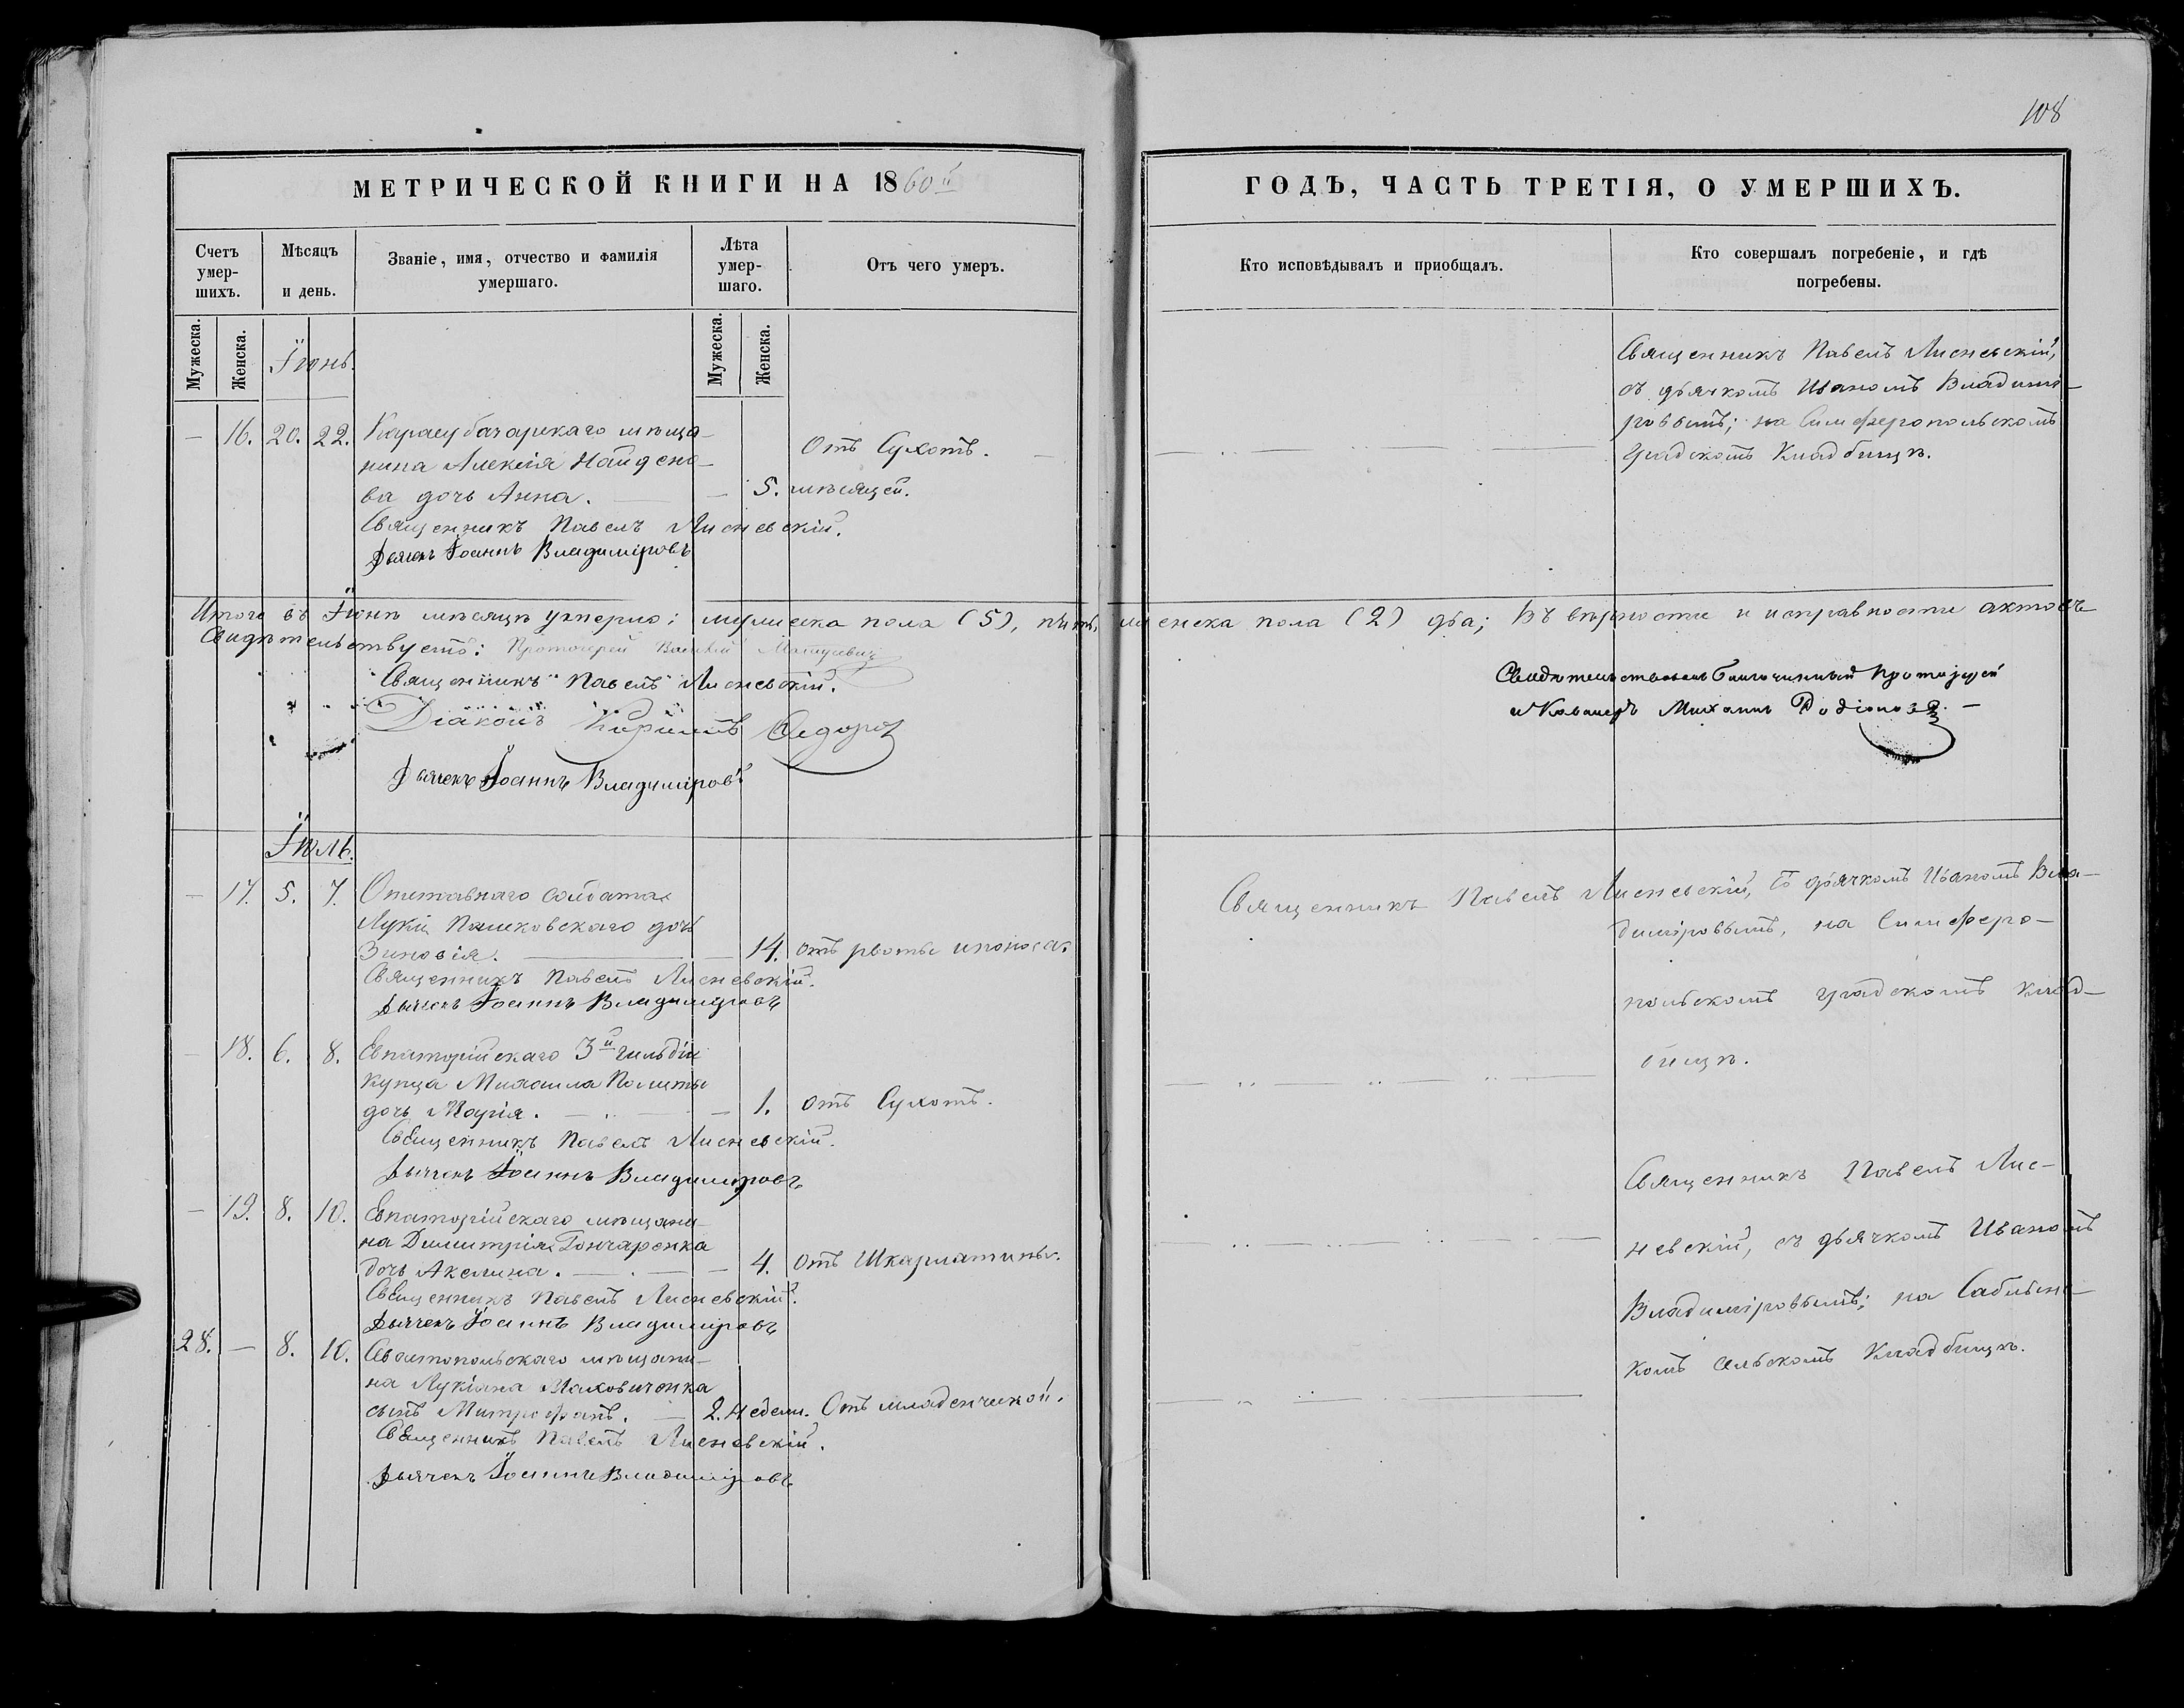 108
МЕТРИЧЕСКОЙ КНИГИ НА 1860й
ГОДЪ, ЧАСТЬ ТРЕТІЯ, О УМЕРШИХЪ.
Счетъ умер-шихъ.
Мѣсяцъ и день.
Званіе, имя, отчество и фамилія умершаго.
Лѣта умер-шаго.
Отъ чего умеръ.
Кто исповѣдывалъ и приобщалъ.
Кто совершалъ погребеніе, и гдѣ погребены.
Мужеска.
Женска.
Мужеска.
Женска.
Іюнь.
— 16. 20. 22. Карасубазарскаго мѣща-
нина Алексія Найдено-
ва дочь Анна. — 5. мѣсяцей.
Отъ Сухотъ.
Священникъ Павелъ Лисневскій.
Дьячекъ Іоаннъ Владиміровъ
Священникъ Павелъ Лисневскій,
съ дьячкомъ Иваномъ Владимі-
ровымъ; на Симферопольскомъ
Градскомъ Кладбищѣ.
Итого въ Іюнѣ мѣсяцѣ умерло: мужеска пола (5), пять, женска пола (2) два; Въ вѣрности и исправности актовъ
Свидѣтельствуетъ: Протоіерей Василій
Священникъ Павелъ Лисневскій.
Діаконъ Кирилъ Федоров
Дьячекъ Іоаннъ Владиміровъ
Свидѣтельствовалъ Благочинный Протоіерей
и Кавалеръ Михаилъ Родіоновъ. —
Іюль.
— 17. 5. 7. Отставнаго Солдата
Луки Пашковскаго дочь
Зиновія. — 14. отъ рвоты и поноса.
Священникъ Павелъ Лисневскій.
Дьячекъ Іоаннъ Владиміровъ
Священникъ Павелъ Лисневскій, съ дьячкомъ Иваномъ Вла-
диміровымъ, на Симферо-
польскомъ градскомъ клад-
бищѣ.
— 18. 6. 8. Евпаторійскаго 3й гильдіи
купца Михаила Политы
дочь Марія. — 1. отъ Сухотъ.
Священникъ Павелъ Лисневскій.
Дьячекъ Іоаннъ Владиміровъ
— 19. 8. 10. Евпаторійскаго мѣщани-
на Димитрія Гончаренка
дочь Акелина. — 4. отъ Шкарлатины.
Священникъ Павелъ Лисневскій.
Дьячекъ Іоаннъ Владиміровъ
Священникъ Павелъ Лис-
невскій, съ дьячкомъ Иваномъ
Владиміровымъ; на
комъ сельскомъ Кладбищѣ.
28. — 8. 10. Севастопольскаго мѣщани-
на Лукіана
сынъ Митрофанъ. — 2. недели. Отъ младенческой.
Священникъ Павелъ Лисневскій.
Дьячекъ Іоаннъ Владиміровъ